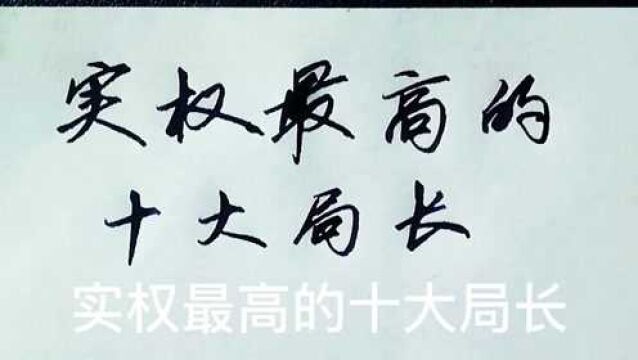 实权最高的
十大局长
实权最高的十大局长